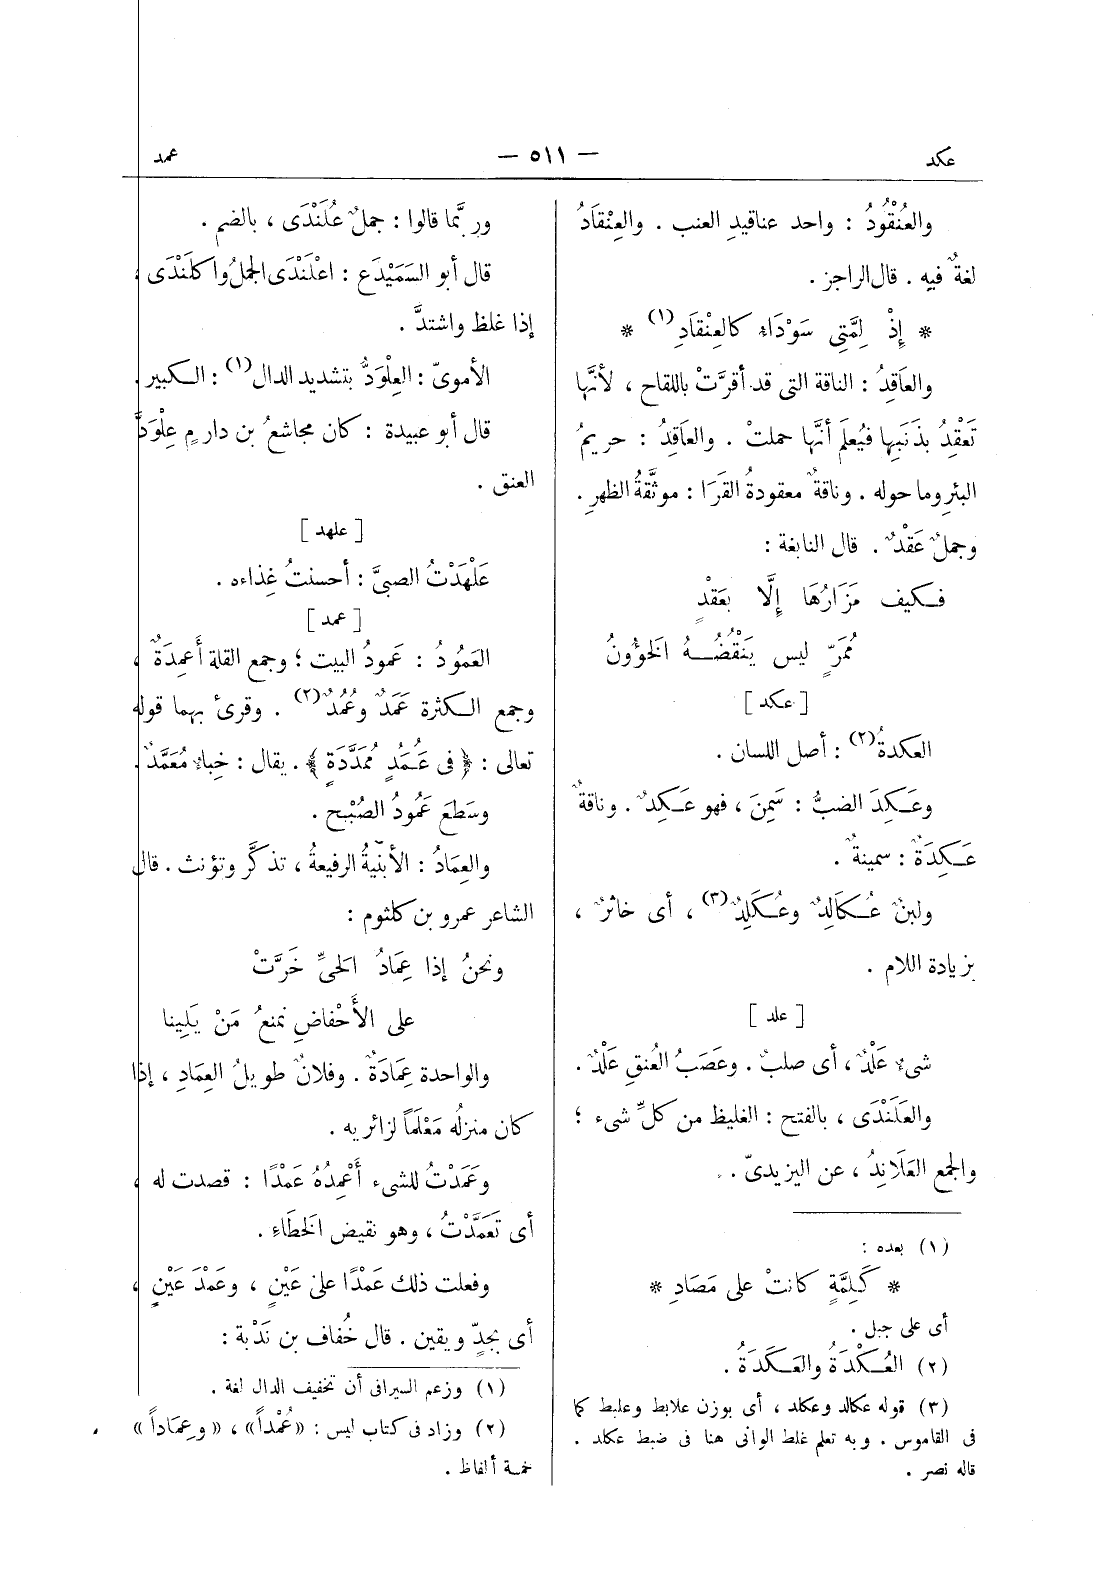 عكد
— ٥١١ —
عمد
والعُنْقُودُ : واحد عناقيدِ العنب . والعِنْقَادُ
لغةٌ فيه . قال الراجز .
* إِذْ لِمَّتِي سَوْدَاء كالعِنْقَادِ (١) *
والعَاقِدُ : الناقة التى قد أقرَّتْ باللقاح ، لأنَّها
تَعْقِدُ بذَنَبِها فيُعلَم أنَّها حملتْ . والعَاقِدُ : حريمُ
البئرِ وما حوله . وناقةٌ معقودةُ القَرَا : موثَّقةُ الظهرِ .
وجملٌ عَقْدٌ . قال النابغة :
فكيف مَزَارُهَا إِلَّا بعَقْدٍ
مُمَرٍّ ليس يَنْقُضُهُ الخؤونُ
[ عكد ]
العكدةُ (٢) : أصل اللسان .
وعَكِدَ الضبُّ : سَمِنَ ، فهو عَكِدٌ . وناقةٌ
عَكِدَةٌ : سمينةٌ .
ولبنٌ عُكَالِدٌ وعُكَلِدٌ (٣) ، أى خاثرٌ ،
بزيادة اللام .
[ علد ]
شىءٌ عَلْدٌ ، أى صلبٌ . وعَصَبُ العُنقِ عَلْدٌ .
والعَلَنْدَى ، بالفتح : الغليظ من كلِّ شىء ؛
والجمع العَلَانِدُ ، عن اليزيدىّ .
(١) بعده :
* كَلِمَّةٍ كانتْ على مَصَادِ *
أى على جبل .
(٢) العُكْدَةُ والعَكَدَةُ .
(٣) قوله عكالد وعكلد ، أى بوزن علابط وعلبط كما
فى القاموس . وبه تعلم غلط الوانى هنا فى ضبط عكلد .
قاله نصر .
وربَّما قالوا : جملٌ عُلَنْدَى ، بالضم .
قال أبو السَمَيْدَع : اعْلَنْدَى الجملُ واكلَنْدَى ،
إذا غلظ واشتدَّ .
الأموىّ : العِلْوَدُّ بتشديد الدال (١) : الكبير .
قال أبو عبيدة : كان مجاشعُ بن دارمٍ عِلْوَدَّ
العنق .
[ علهد ]
عَلْهَدْتُ الصبىَّ : أحسنتُ غِذاءه .
[ عمد ]
العَمُودُ : عَمودُ البيت ؛ وجمع القلة أَعمِدَةٌ ،
وجمع الكثرة عَمَدٌ وعُمُدٌ (٢) . وقرئ بهما قوله
تعالى : ﴿ فى عَُمَُدٍ مُمَدَّدَةٍ ﴾ . يقال : خِباءٌ مُعَمَّدٌ .
وسَطَعَ عَمُودُ الصُبْح .
والعِمَادُ : الأبنيةُ الرفيعةُ ، تذكَّر وتؤنث . قال
الشاعر عمرو بن كلثوم :
ونحنُ إذا عِمَادُ الحىِّ خَرَّتْ
على الأَحْفاضِ نمنعُ مَنْ يَلِينا
والواحدة عِمَادَةٌ . وفلانٌ طويلُ العِمَادِ ، إذا
كان منزلُه مَعْلَماً لزائريه .
وعَمَدْتُ للشىء أَعْمِدُهُ عَمْدًا : قصدت له ،
أى تَعَمَّدْتُ ، وهو نقيض الخَطَاءِ .
وفعلت ذلك عَمْدًا علىْ عَيْنٍ ، وعَمْدَ عَيْنٍ ،
أى بجدٍّ ويقين . قال خُفاف بن نَدْبة :
(١) وزعم السيرافى أن تخفيف الدال لغة .
(٢) وزاد فى كتاب ليس : «عُمْداً» ، «وعِمَاداً» .
خمسة ألفاظ .